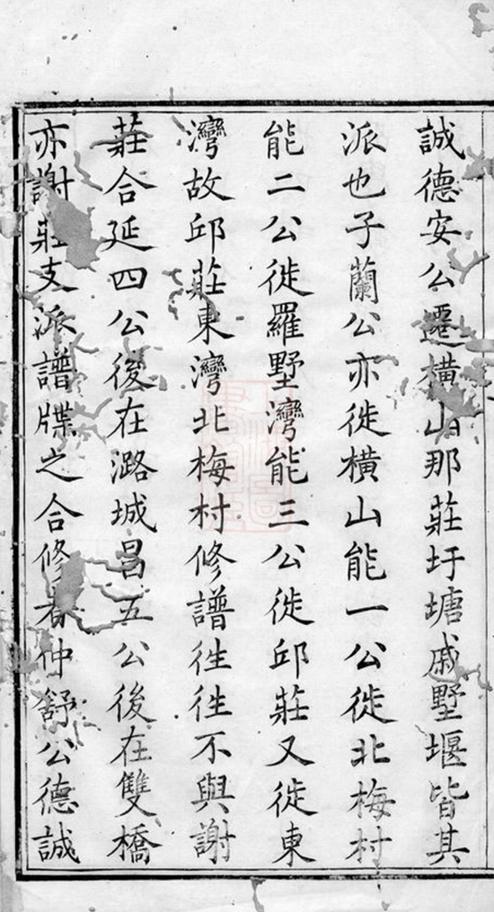 誠德安公遷橫山那莊圩塘戚墅堰皆其
派也子蘭公亦徙橫山能一公徙北梅村
能二公徙羅墅灣能三公徙邱莊又徙東
灣故邱莊東灣北梅村修譜往往不與謝
莊合延四公後在潞城昌五公後在雙橋
亦謝莊支派譜牒之合修者仲舒公德誠